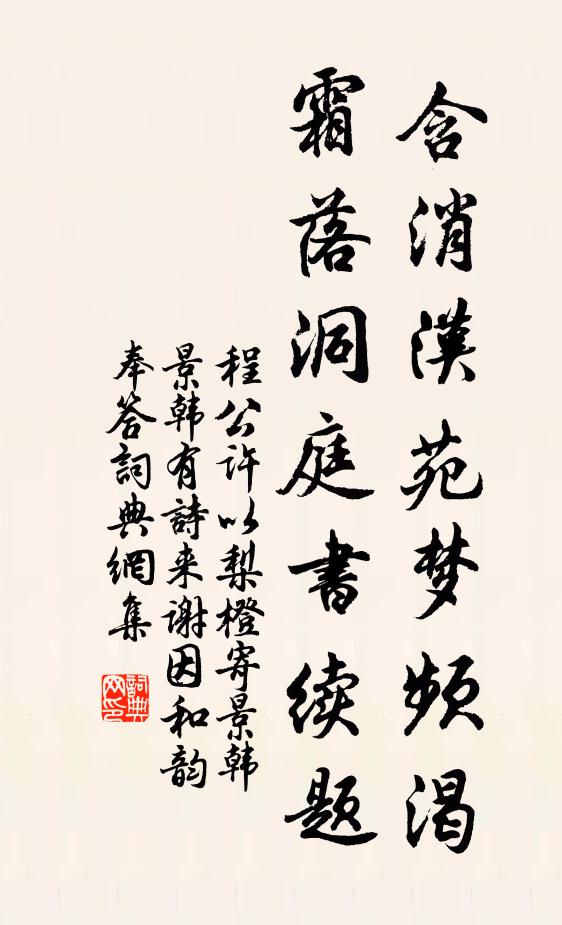 含消漢苑梦频渴
霜落洞庭書续题
程公许以梨橙寄景韩
景韩有詩来谢因和韵
奉答詞典網集
詞典网印